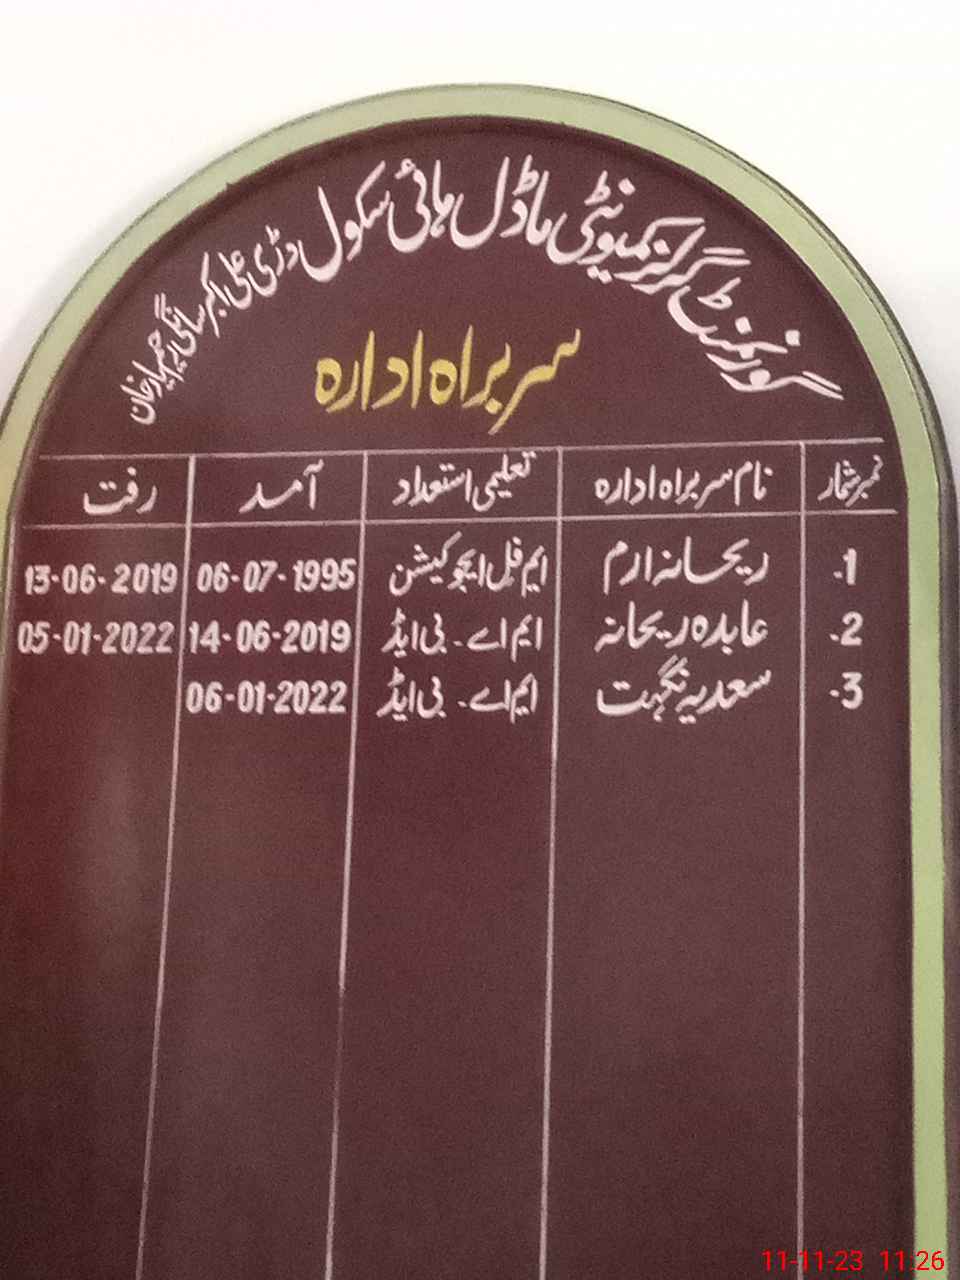 گورنمنٹ گرلز کمیونٹی ماڈل ہائی سکول دڑی علی اکبر سانگی رحیم یار خان
سربراہ ادارہ
نمبر شمار نام سربراہ ادارہ تعلیمی استعداد آمد رفت
1- ریحانہ ارم ایم فل ایجوکیشن 06-07-1995 13-06-2019
2- عابدہ ریحانہ ایم اے - بی ایڈ 14-06-2019 05-01-2022
3- سعدیہ نگہت ایم اے - بی ایڈ 06-01-2022
11-11-23 11:26